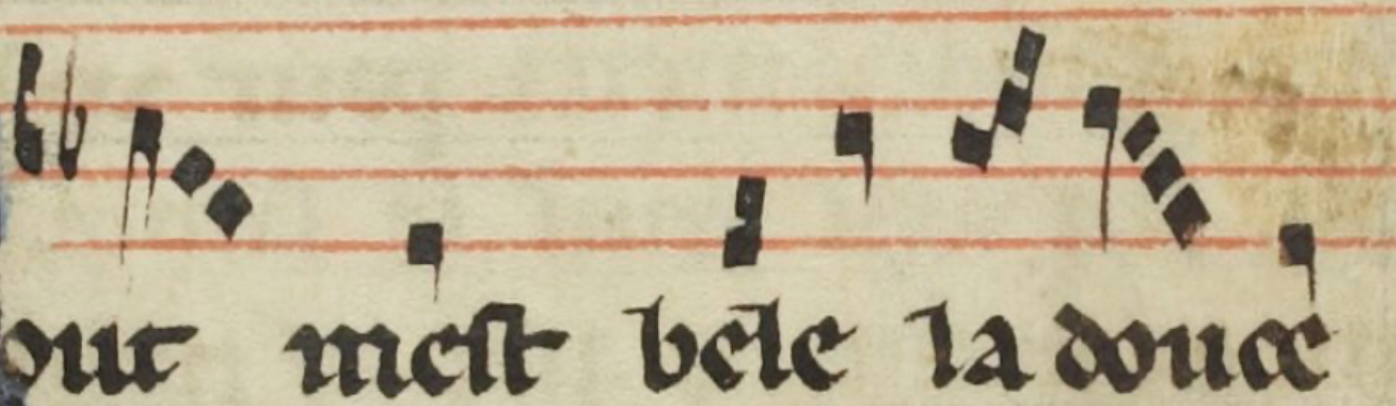 out mest bele la douce